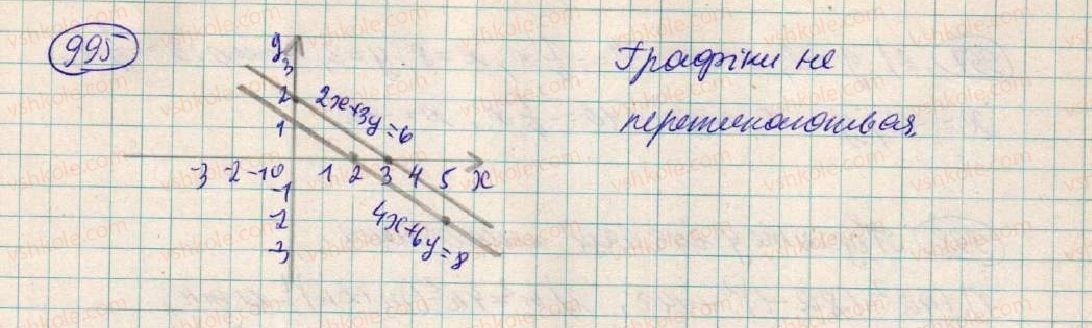 995
y
3
2
2x+3y=6
1
-3 -2 -1 0 1 2 3 4 5 x
-1
-2
4x+6y=8
-3
Графіки не
перетинаються.
vshkole.com